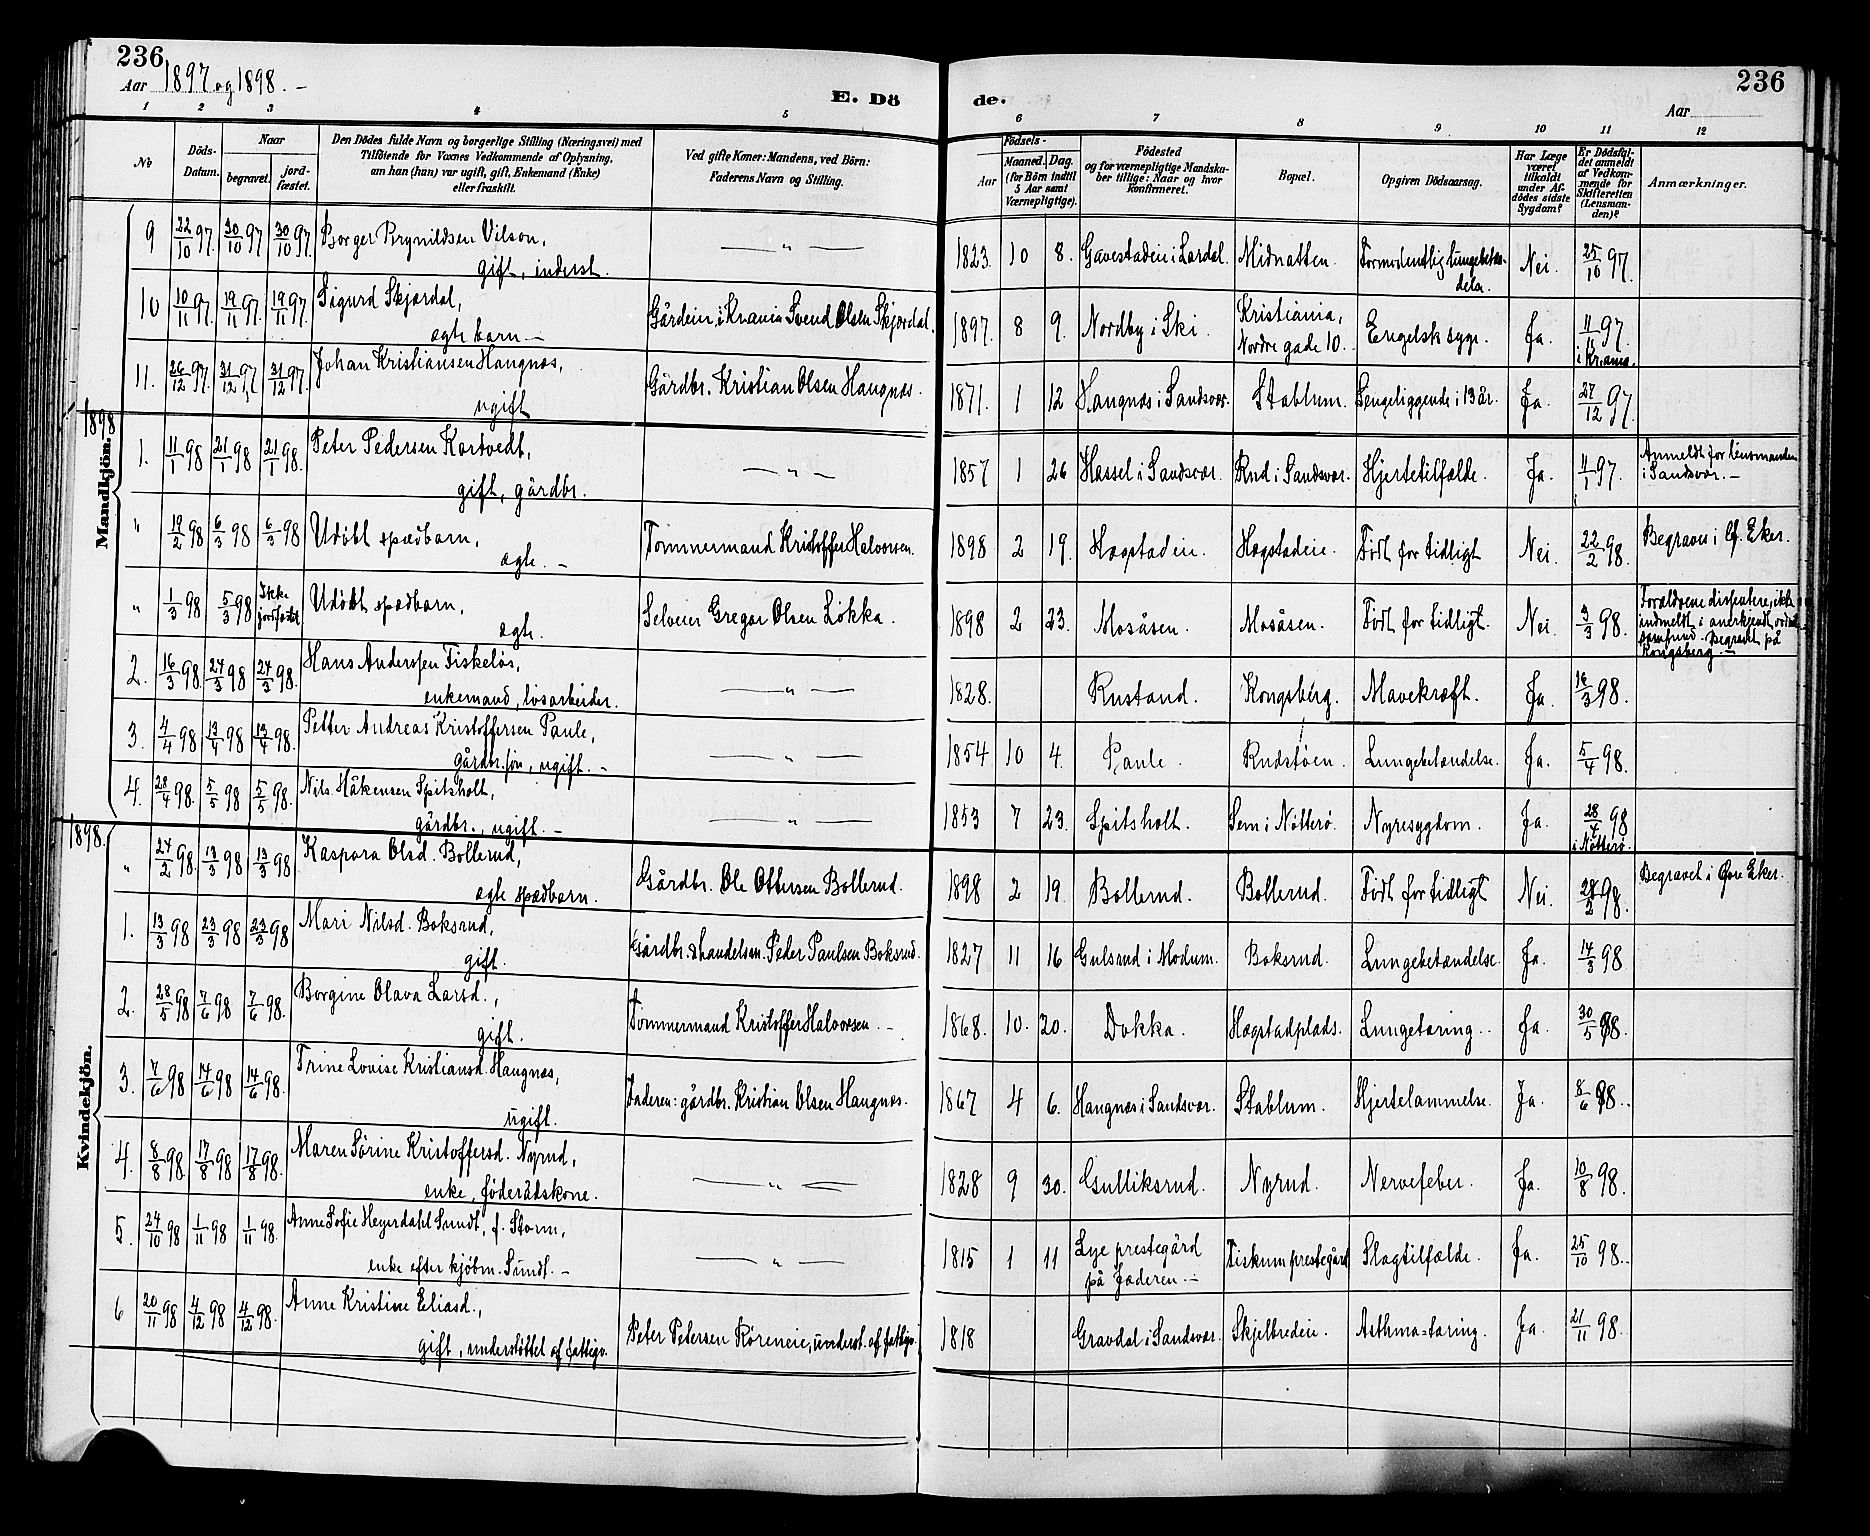 236
Aar 1897 og 1898. –
E. Dö
1 2 3 4 5
No
Döds-Datum.
Naar
begravet.
jord-fæstet.
Den Dödes fulde Navn og borgerlige Stilling (Næringsvei) med
Tilföiende for Voxnes Vedkommende af Oplysning,
om han (hun) var ugift, gift, Enkemand (Enke)
eller fraskilt.
Ved gifte Koner: Mandens, ved Börn:
Faderens Navn og Stilling.
9 22/10 97. 30/10 97 30/10 97 Borger Brynildsen Vilson,
gift, inderst. — " —
10 10/11 97. 19/11 97. 19/11 97. Sigurd Skjordal,
ægte barn — Gårdein i Krania Svend Olsen Skjordal.
11. 26/12 97. 31/12 97 31/12 97. Johan Kristiansen Haugnæs,
ugift Gårdbr. Kristian Olsen Haugnæs.
1898
Mandkjön.
1. 11/1 98 21/1 98 21/1 98. Peter Pedersen Kortvedt,
gift, gårdbr. — " —
" 19/2 98 6/3 98 6/3 98 Udöbt spædbarn,
ægte. – Tömmermand Kristoffer Halvorsen.
" 1/3 98 5/3 98 Ikke jordfæstet Udöbt spædbarn,
ægte. Selveier Gregar Olsen Lökka.
2. 16/3 98. 24/3 98 24/3 98. Hans Anderssen Fiskelös,
enkemand, lösarbeider. — " —
3. 4/4 98 13/4 98 13/4 98. Petter Andreas Kristoffersen Paule,
gårdbr. sön, ugift. – — " —
4. 28/4 98. 5/5 98 5/5 98. Nils Håkensen Spitsholt,
gårdbr., ugift. – — " —
1898.
Kvindekjön.
" 24/2 98 13/3 98 13/3 98 Kaspara Olsd. Bollerud,
ægte spædbarn. Gårdbr. Ole Ottersen Bollerud.
1. 13/3 98 23/3 98 23/3 98 Mari Nilsd. Boksrud,
gift. Gårdbr. & handelsm. Peder Paulsen Boksrud.
2. 28/5 98 7/6 98 7/6 98. Borgine Olava Larsd.,
gift. Tömmermand Kristoffer Halvorsen. –
3. 7/6 98 14/6 98 14/6 98. Trine Lovise Kristiansd. Haugnæs,
ugift. Faderen: gårdbr. Kristian Olsen Haugnæs.
4. 8/8 98. 17/8 98 17/8 98. Maren Sörine Kristoffersd. Nyrud,
enke, föderådskone. — " —
5. 24/10 98 1/11 98 1/11 98. Anne Sofie Heyerdahl Sundt, f. Storm,
enke efter kjöbm. Sundt. – — " —
6 20/11 98 4/12 98 4/12 98. Anne Kristine Eliasd.,
gift, understöttet af fattigv. Peter Petersen Köreneie, underst. af fattigv.
236
Aar
de.
6 7 8 9 10 11 12
Födsels-
Aar
Maaned. Dag.
(for Börn indtil
5 Aar samt
Værnepligtige).
Födested
og for værnepligtige Mandskaber tillige: Naar og hvor
konfirmeret.
Bopæl.
Opgiven Dödsaarsag.
Har Læge
været
tilkaldt
under Afdödes sidste
Sygdom?
Er Dödsfaldet anmeldt
af Vedkommende for
Skifteretten
(Lensmanden)?
Anmærkninger.
1823. 10 8. Gavestadeie i Lardal. Midnatten. Formodentlig lungebetændelse. Nei. 25/10 97.
1897. 8 9. Nordby i Ski. Kristiania, Nordre gade 10. Engelsk syge. Ja. 11/11 97. i Kr.ania.
1871. 1 12 Haugnæs i Sandsvær. Stablum. Sengeliggende i 13 år. Ja. 27/12 97.
1857 1 26 Hassel i Sandsvær. Rud i Sandsvær. Hjertetilfælde. Ja. 11/1 97. Anmeldt for lensmanden
i Sandsvær. –
1898 2 19. Hægstadeie. Hægstadeie. Födt for tidligt Nei. 22/2 98. Begraven i Öf. Eker.
1898 2 23. Mosåsen. Mosåsen. Födt for tidligt. Nei. 3/3 98. Forældrene dissentere, ikke
indmeldt i anerkjendt
samfund. Begravet på
Kongsberg. –
1828. Rustand. Kongsberg. Mavekræft. Ja. 16/3 98.
1854 10 4. Paule. Rudstöen. Lungebetændelse. Ja. 5/4 98.
1853 7 23. Spitsholt. Sem i Nötterö. Nyresygdom. Ja. 28/4 98 i Nötterö.
1898 2 19. Bollerud. Bollerud. Födt for tidligt Nei. 28/2 98. Begravet i Övre Eker.
1827 11 16 Gulsrud i Modum. Boksrud. Lungebetændelse. Ja. 14/3 98
1868. 10. 20. Dokka. Hægstadplads. Lungetæring. Ja. 30/5 98.
1867 4 6. Haugnæs i Sandsvær. Stablum. Hjertelammelse. Ja. 8/6 98.
1828 9 30. Gulliksrud. Nyrud. Nervefeber. Ja. 10/8 98.
1815 1 11 Lye prestegård
på Jæderen. – Fiskum prestegård Slagtilfælde. Ja. 25/10 98.
1818 Gravdal i Sandsvær. Skjelbredeie. Asthma-tæring. Ja. 21/11 98.